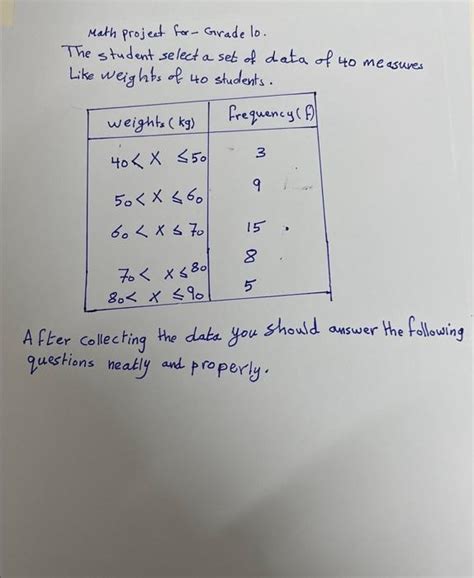 Math project for - Grade 10.
The student select a set of data of 40 measures
Like weights of 40 students.
weights (kg) frequency (f)
40 < x ≤ 50 3
50 < x ≤ 60 9
60 < x ≤ 70 15
70 < x ≤ 80 8
80 < x ≤ 90 5
After collecting the data you should answer the following
questions neatly and properly.